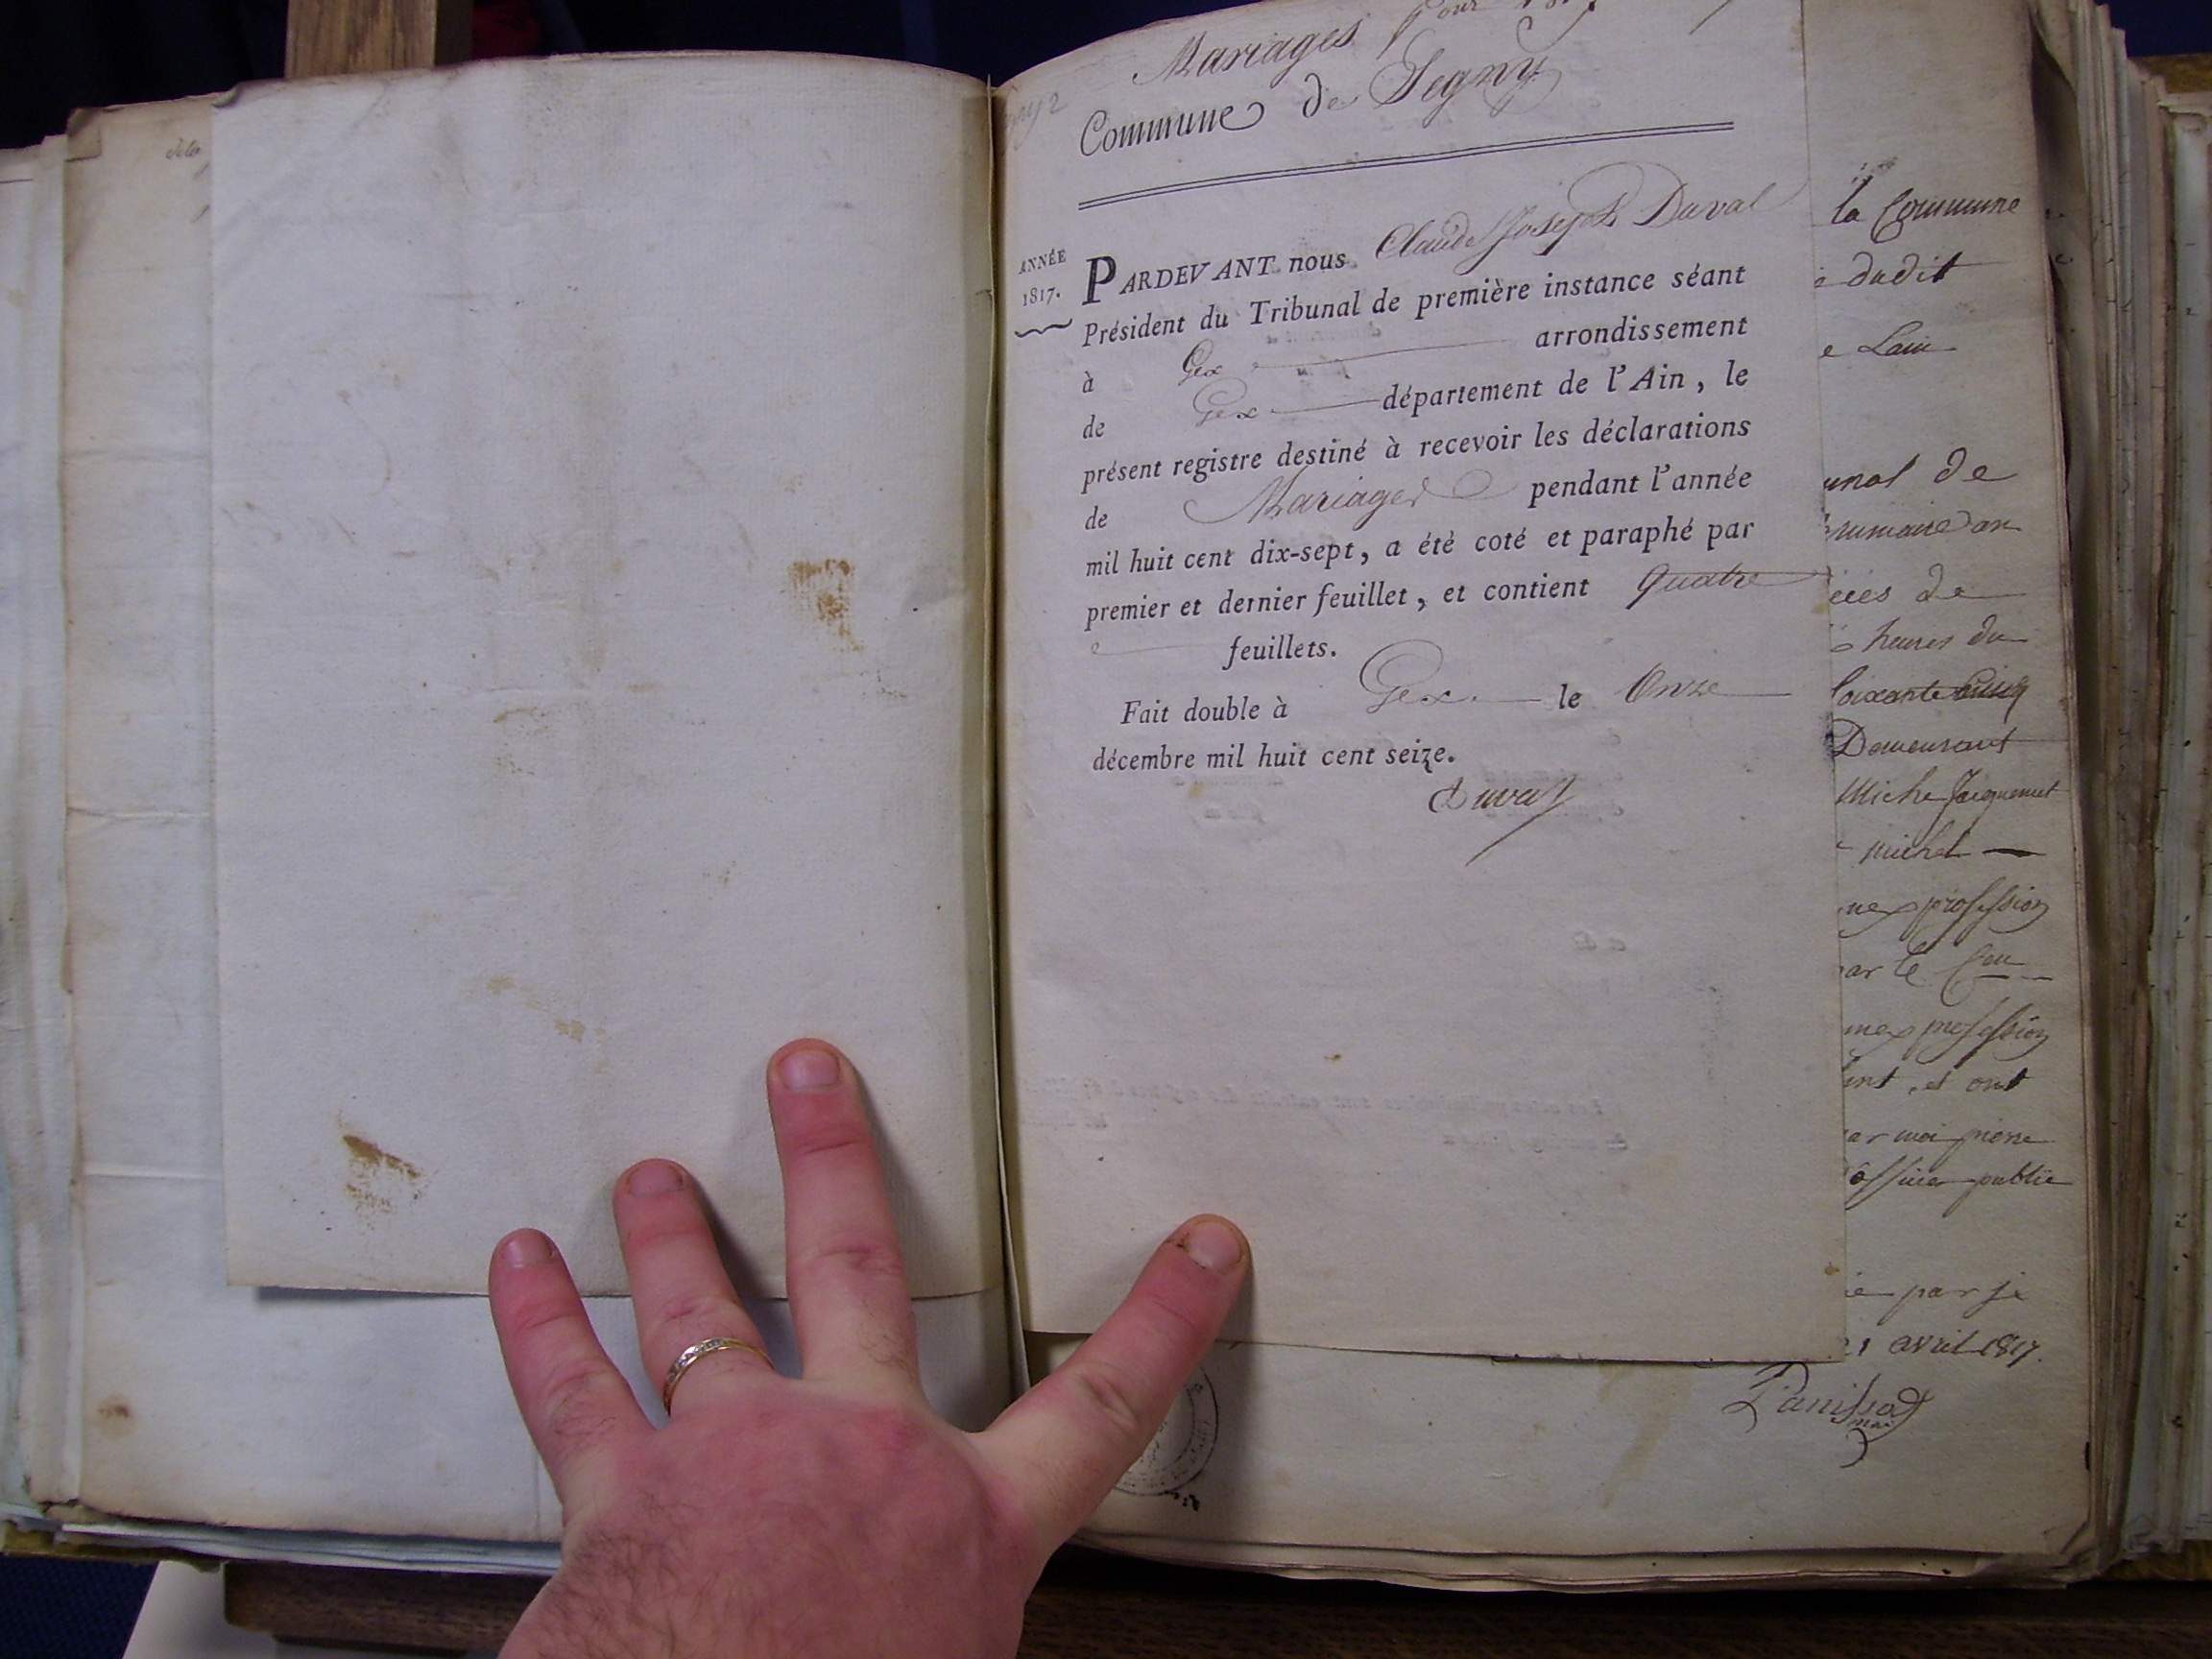 Mariages pour 1817
Commune de Segny
ANNÉE
1817.
PARDEVANT nous Claude Joseph Duval
Président du Tribunal de première instance séant
à Gex arrondissement
de Gex département de l'Ain, le
présent registre destiné à recevoir les déclarations
de Mariages pendant l'année
mil huit cent dix-sept, a été coté et paraphé par
premier et dernier feuillet, et contient quatre
feuillets.
Fait double à Gex le Onze
décembre mil huit cent seize.
Duval
la Commune
dudit
de
heures du
Demeurant
michel
profession
ar le
profession
et ont
ar moi pierre
officier public
par je
avril 1817.